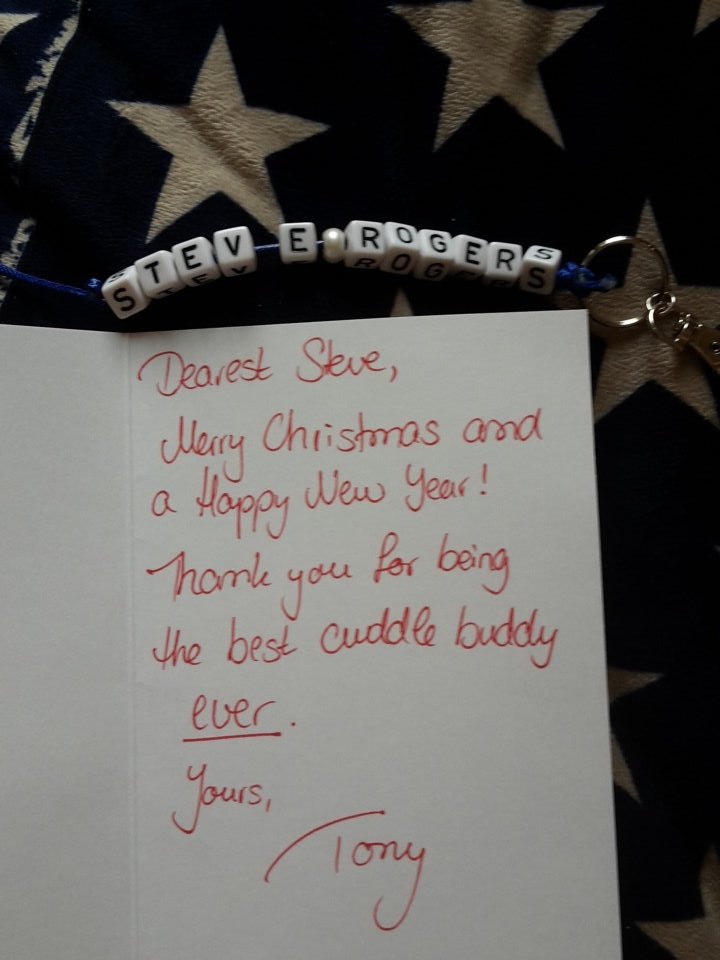 STEVE ROGERS
Dearest Steve,
Merry Christmas and
a Happy New Year!
Thank you for being
the best cuddle buddy
ever.
Yours,
Tony